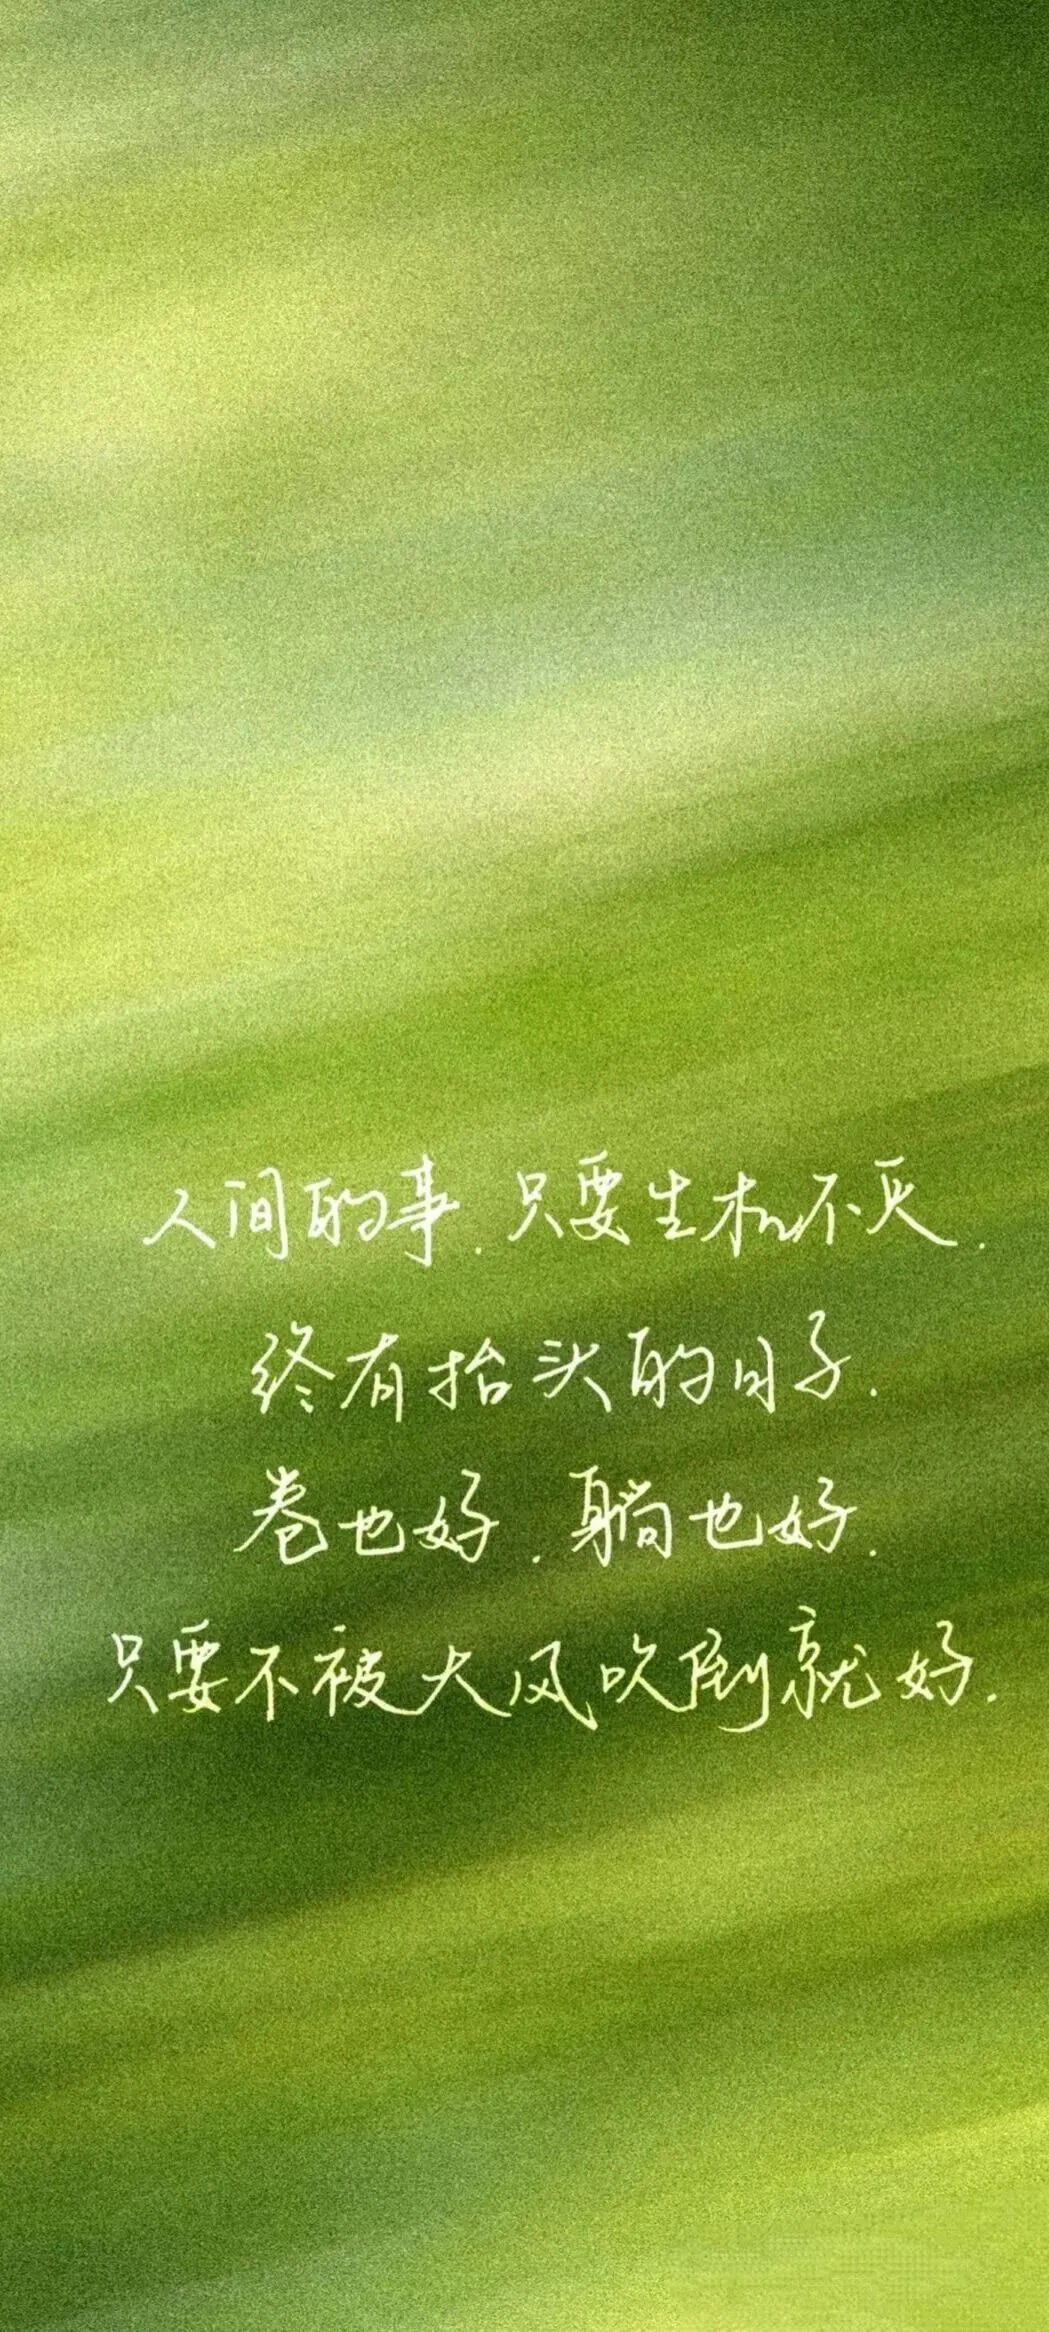 人间的事.只要生机不灭.
终有抬头的日子.
卷也好.躺也好.
只要不被大风吹倒就好.